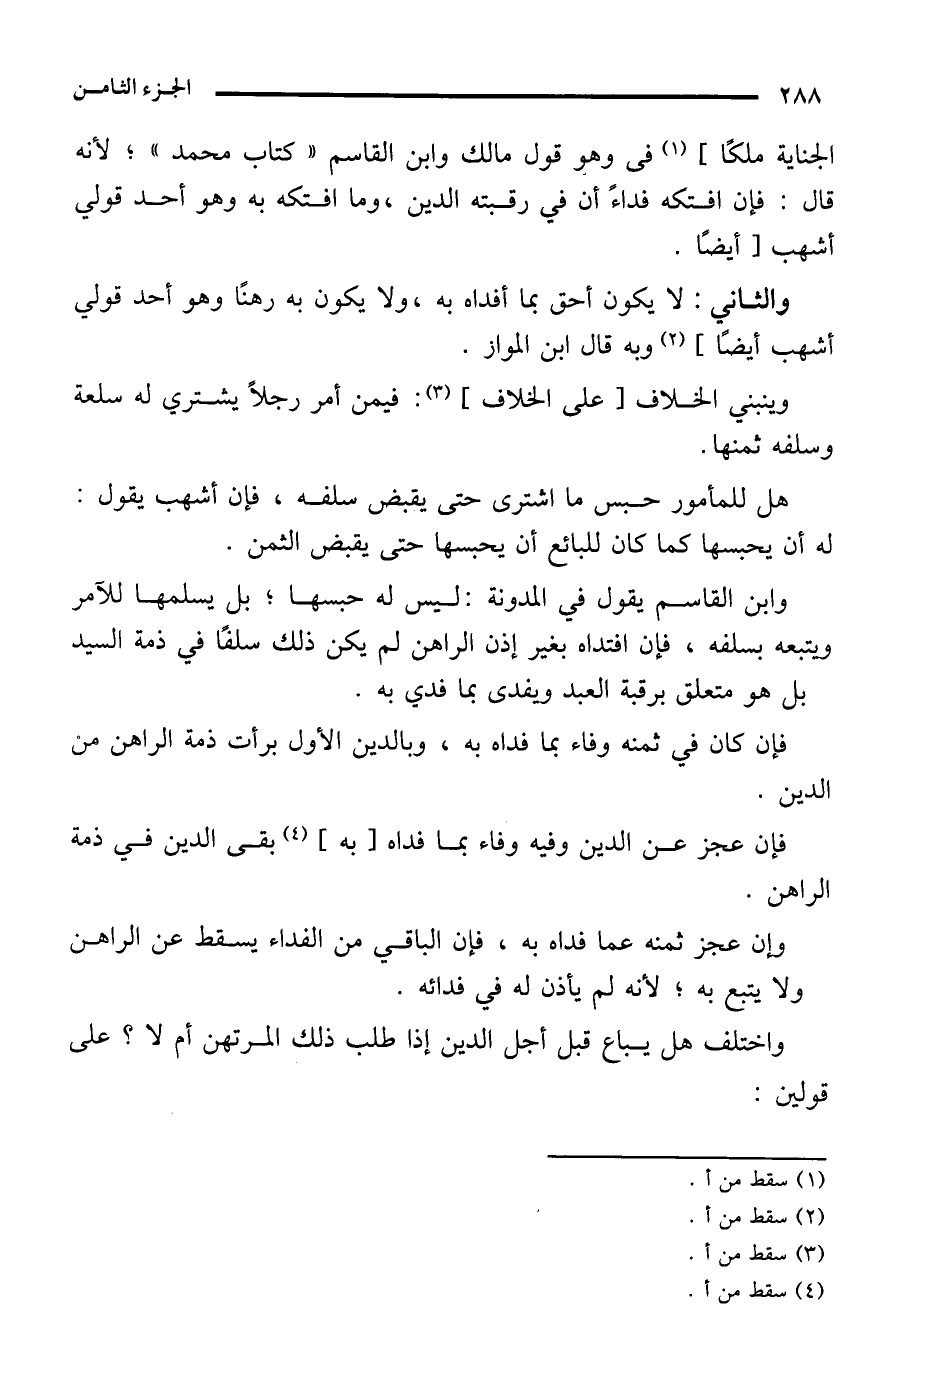 ٢٨٨ الجـزء الثامـن
الجناية ملكًا ] (١) فى وهو قول مالك وابن القاسم « كتاب محمد » ؛ لأنه
قال : فإن افـتكه فداءً أن في رقـبته الدين ،وما افـتكه به وهو أحـد قولي
أشهب [ أيضًا .
والثـاني : لا يكون أحق بما أفداه به ،ولا يكون به رهنًا وهو أحد قولي
أشهب أيضًا ] (٢) وبه قال ابن المواز .
وينبني الخـلاف [ على الخلاف ] (٣): فيمن أمر رجلاً يشـتري له سلعة
وسلفه ثمنها.
هل للمأمور حـبس ما اشترى حتى يقبض سلفـه ، فإن أشهب يقول :
له أن يحبسها كما كان للبائع أن يحبسها حتى يقبض الثمن .
وابن القاسـم يقول في المدونة :لـيس له حبسهـا ؛ بل يسلمهـا للآمر
ويتبعه بسلفه ، فإن افتداه بغير إذن الراهن لم يكن ذلك سلفًا في ذمة السيد
بل هو متعلق برقبة العبد ويفدى بما فدي به .
فإن كان في ثمنه وفاء بما فداه به ، وبالدين الأول برأت ذمة الراهن من
الدين .
فإن عجز عـن الدين وفيه وفاء بمـا فداه [ به ] (٤) بقـى الدين فـي ذمة
الراهن .
وإن عجز ثمنه عما فداه به ، فإن الباقـي من الفداء يسـقط عن الراهـن
ولا يتبع به ؛ لأنه لم يأذن له في فدائه .
واختلف هل يـباع قبل أجل الدين إذا طلب ذلك المـرتهن أم لا ؟ على
قولين :
(١) سقط من أ .
(٢) سقط من أ .
(٣) سقط من أ .
(٤) سقط من أ .